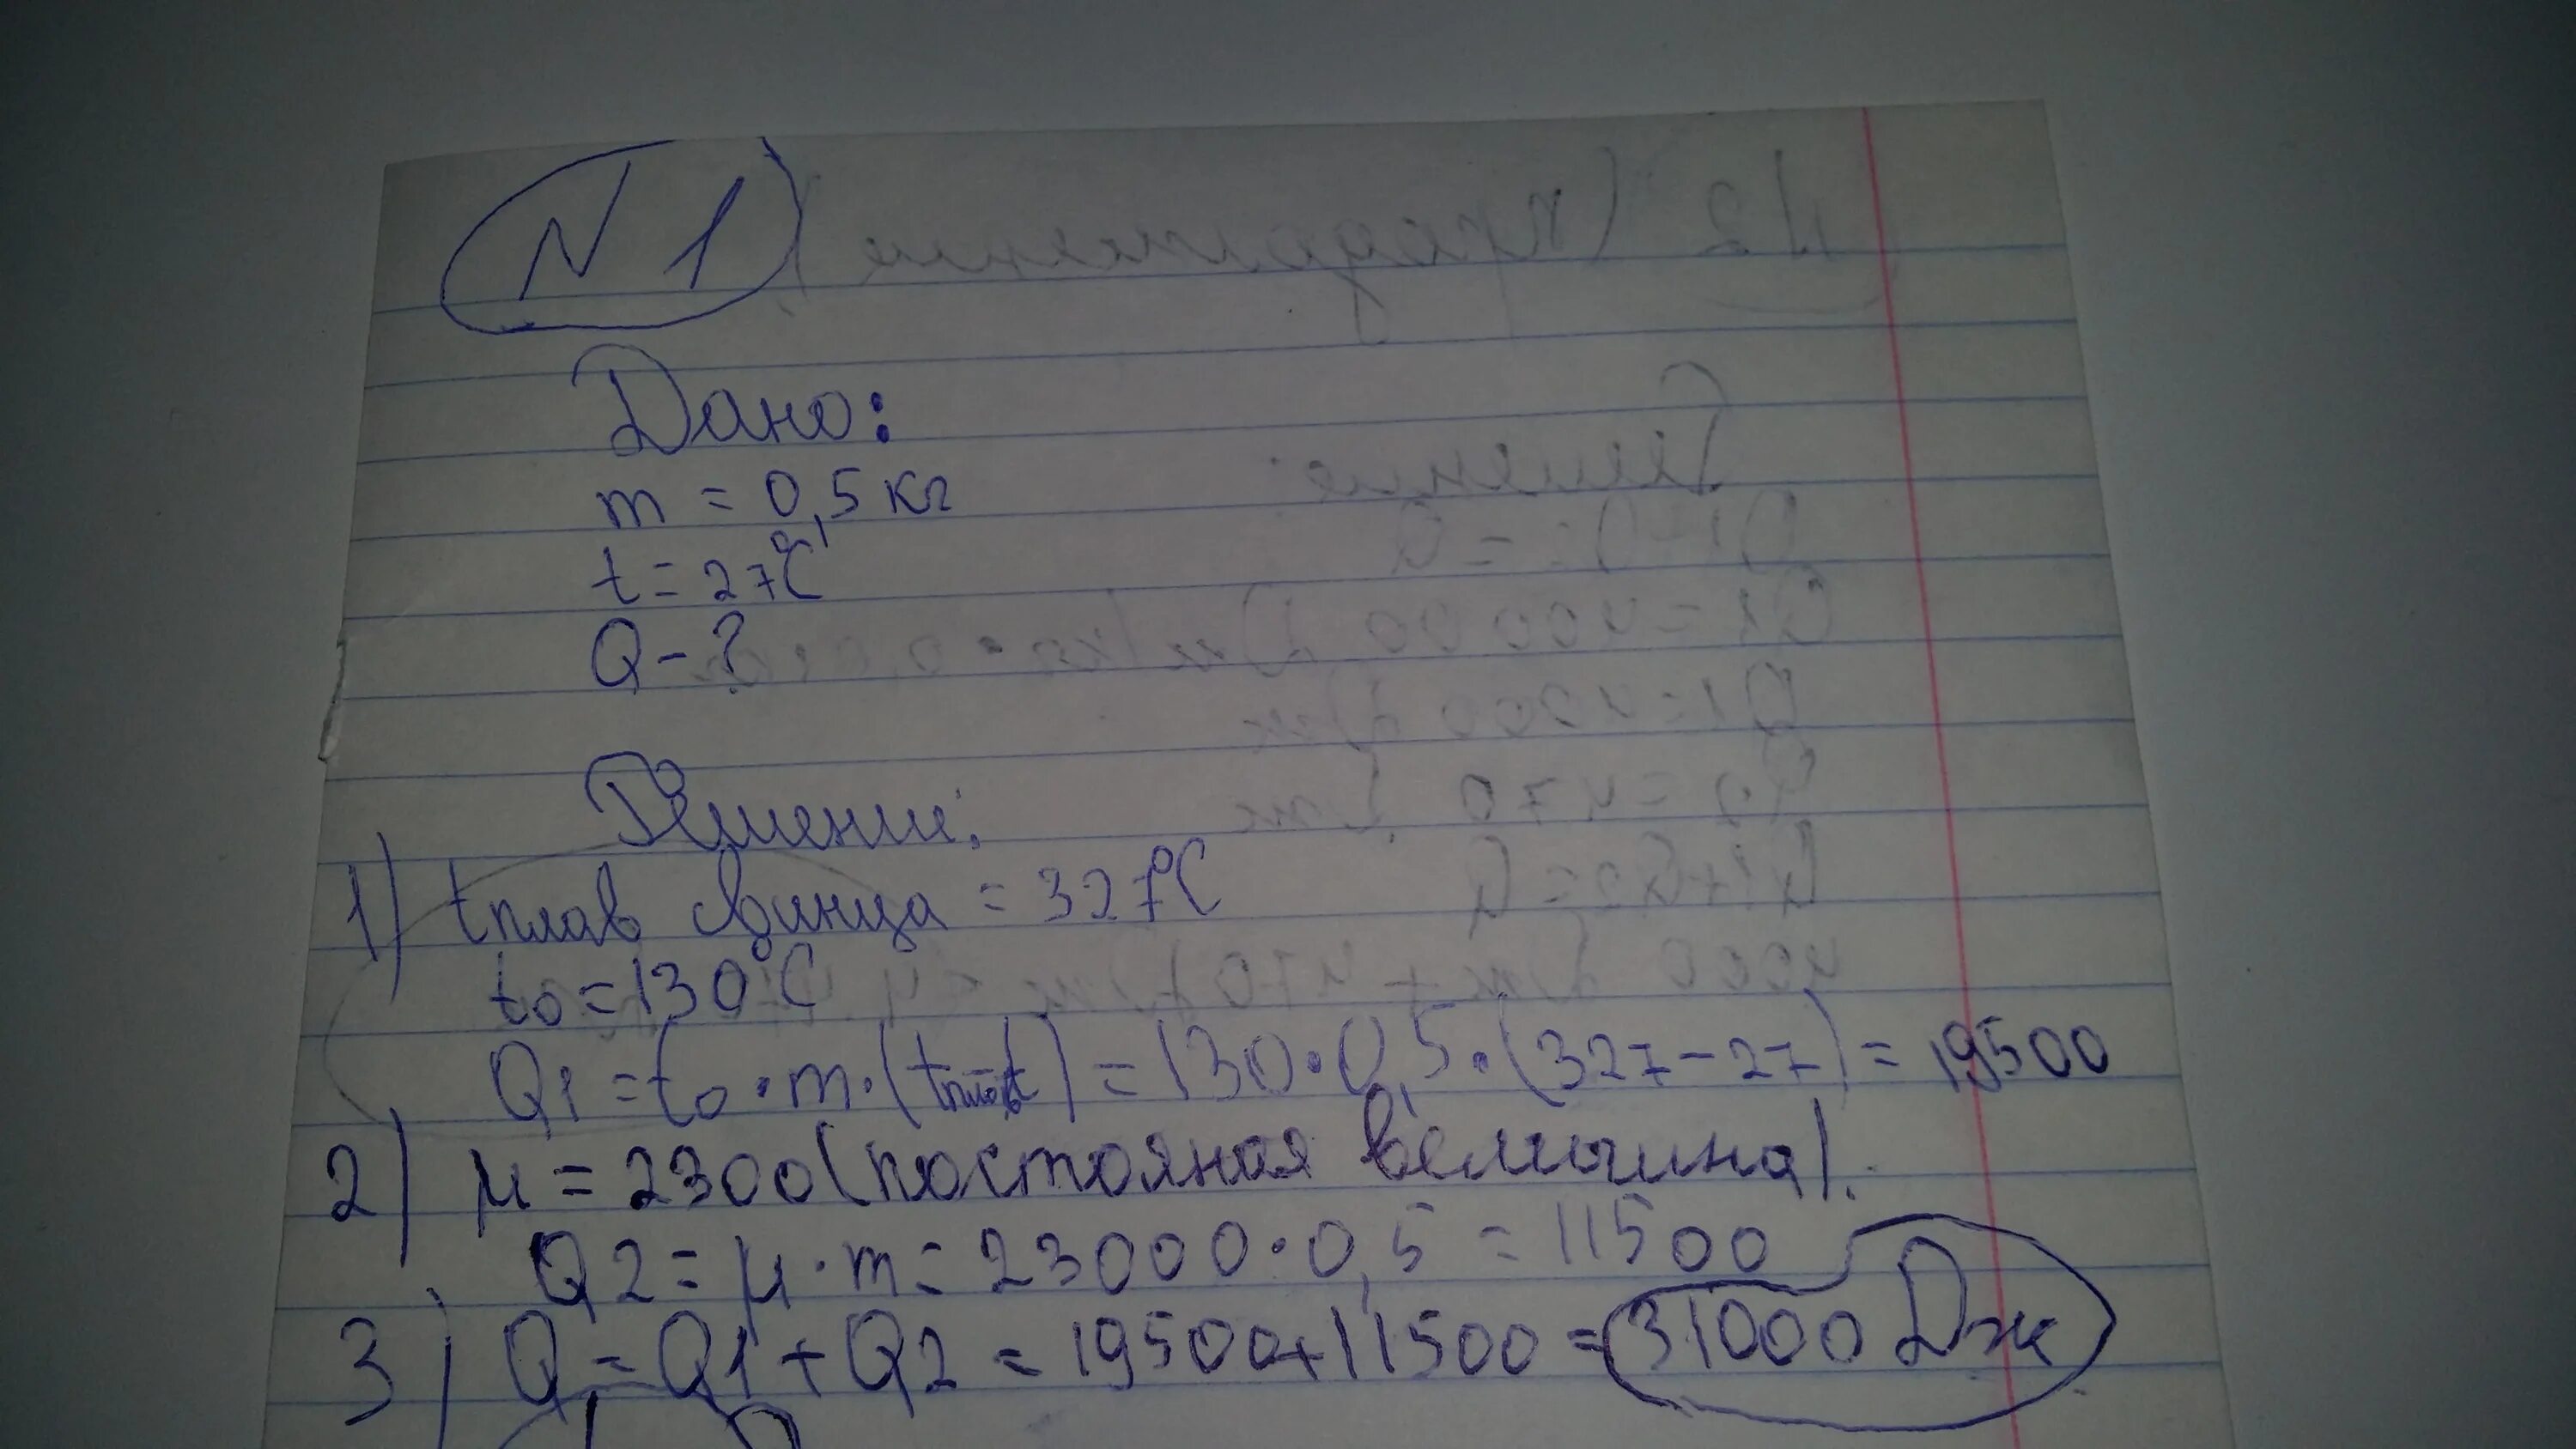 N 1
Дано:
m = 0,5 кг
t = 27°C
Q - ?
Решение:
1) tплав свинца = 327°C
t0 = 130°C
Q1 = t0 · m · (tплав-t) = 130 · 0,5 · (327 - 27) = 19500
2) μ = 2300 (постояная величина).
Q2 = μ · m = 23000 · 0,5 = 11500
3) Q = Q1 + Q2 = 19500 + 11500 = 31000 Дж